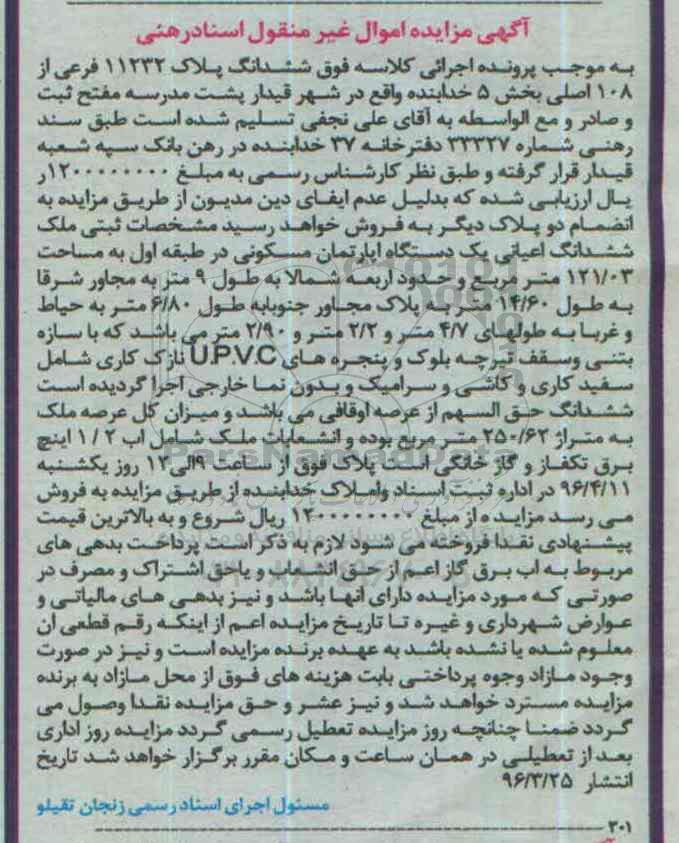 آگهی مزایده اموال غیر منقول اسنادرهنی
به موجب پرونده اجرائی کلاسه فوق ششدانگ پلاک ۱۱۲۳۲ فرعی از
۱۰۸ اصلی بخش ۵ خدابنده واقع در شهر قیدار پشت مدرسه مفتح ثبت
و صادر و مع الواسطه به آقای علی نجفی تسلیم شده است طبق سند
رهنی شماره ۳۳۳۲۷ دفترخانه ۳۷ خدابنده در رهن بانک سپه شعبه
قیدار قرار گرفته و طبق نظر کارشناس رسمی به مبلغ ۱۲۰۰۰۰۰۰۰۰ر
یال ارزیابی شده که بدلیل عدم ایفای دین مدیون از طریق مزایده به
انضمام دو پلاک دیگر به فروش خواهد رسید مشخصات ثبتی ملک
ششدانگ اعیانی یک دستگاه اپارتمان مسکونی در طبقه اول به مساحت
۱۲۱/۰۳ متر مربع وحدود اربعه شمالا به طول ۹ متر به مجاور شرقا
به طول ۱۴/۶۰ متر به پلاک مجاور جنوبابه طول ۶/۸۰ متر به حیاط
و غربا به طولهای ۴/۷ متر و ۲/۲ متر و ۲/۹۰ متر می باشد که با سازه
بتنی وسقف تیرچه بلوک و پنجره های U.P.V.C نازک کاری شامل
سفید کاری و کاشی و سرامیک و بدون نما خارجی اجرا گردیده است
ششدانگ حق السهم از عرصه اوقافی می باشد و میزان کل عرصه ملک
به متراژ ۲۵۰/۶۲ متر مربع بوده و انشعابات ملک شامل اب ۲ / ۱ اینچ
برق تکفاز و گاز خانگی است پلاک فوق از ساعت ۹الی۱۲ روز یکشنبه
۹۶/۴/۱۱ در اداره ثبت اسناد واملاک خدابنده از طریق مزایده به فروش
می رسد مزایده از مبلغ ۱۲۰۰۰۰۰۰۰۰ ریال شروع و به بالاترین قیمت
پیشنهادی نقدا فروخته می شود لازم به ذکر است پرداخت بدهی های
مربوط به اب برق گاز اعم از حق انشعاب و یاحق اشتراک و مصرف در
صورتی که مورد مزایده دارای انها باشد و نیز بدهی های مالیاتی و
عوارض شهرداری و غیره تا تاریخ مزایده اعم از اینکه رقم قطعی ان
معلوم شده یا نشده باشد به عهده برنده مزایده است و نیز در صورت
وجود مازاد وجوه پرداختی بابت هزینه های فوق از محل مازاد به برنده
مزایده مسترد خواهد شد و نیز عشر و حق مزایده نقدا وصول می
گردد ضمنا چنانچه روز مزایده تعطیل رسمی گردد مزایده روز اداری
بعد از تعطیلی در همان ساعت و مکان مقرر برگزار خواهد شد تاریخ
انتشار ۹۶/۳/۲۵
مسئول اجرای اسناد رسمی زنجان تقیلو
۳۰۱
ParsNamadData